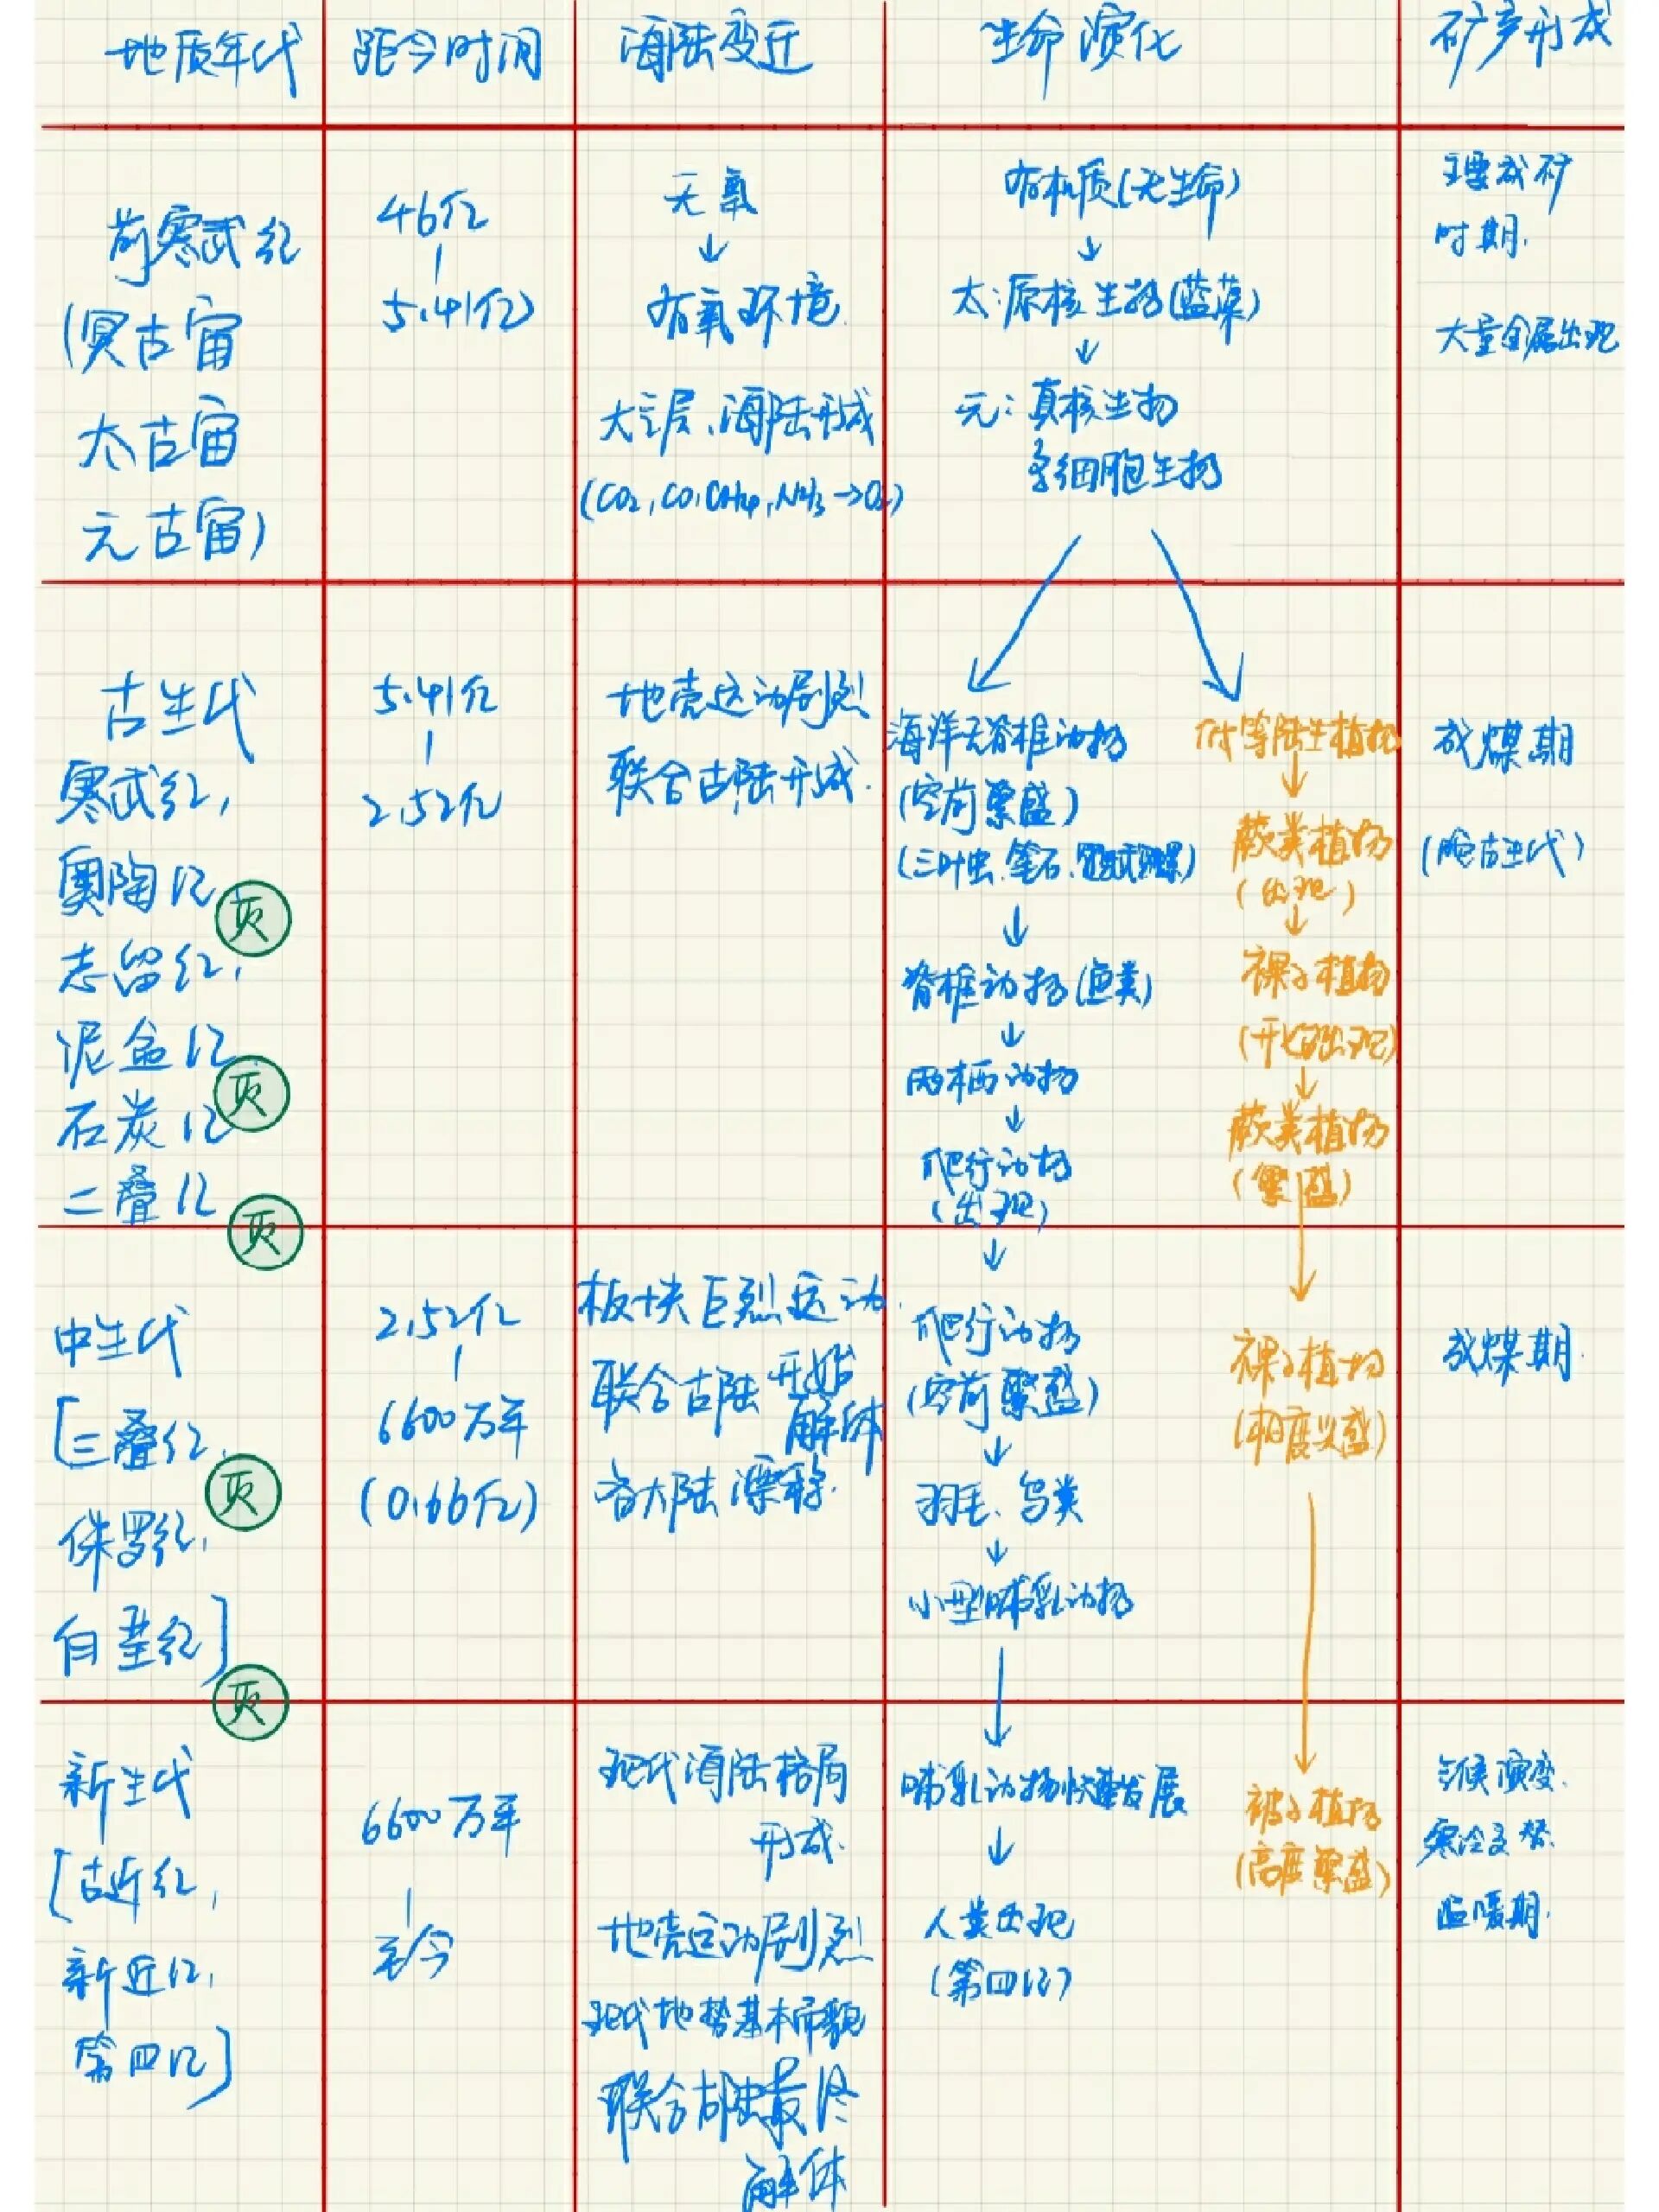 地质年代
距今时间
海陆变迁
生命演化
矿产形成
前寒武纪
(冥古宙
太古宙
元古宙)
46亿
|
5.41亿
无氧
↓
有氧环境
大气层、海陆形成
(CO₂, CO, CH₄, NH₃→O₂)
有机质(无生命)
↓
太:原核生物(蓝藻)
↓
元:真核生物
多细胞生物
主要成矿
时期.
大量金属出现
古生代
寒武纪,
奥陶纪
灭
志留纪,
泥盆纪
灭
石炭纪
二叠纪
灭
5.41亿
|
2.52亿
地壳运动剧烈
联合古陆形成.
海洋无脊椎动物
(空前繁盛)
(三叶虫.笔石.鹦鹉螺)
↓
脊椎动物(鱼类)
↓
两栖动物
↓
爬行动物
(出现)
↓
低等陆生植物
↓
蕨类植物
(出现)
↓
裸子植物
(开始出现)
↓
蕨类植物
(繁盛)
成煤期
(晚古生代)
中生代
[三叠纪,
灭
侏罗纪,
白垩纪]
灭
2.52亿
|
6600万年
(0.66亿)
板块巨烈运动.
联合古陆开始
解体
各大陆漂移.
爬行动物
(空前繁盛)
↓
羽毛、鸟类
↓
小型哺乳动物
裸子植物
(极度兴盛)
成煤期.
新生代
[古近纪,
新近纪,
第四纪]
6600万年
|
至今
现代海陆格局
形成.
地壳运动剧烈
现代地势基本面貌
联合古陆最终
解体
哺乳动物快速发展
↓
人类出现
(第四纪)
被子植物
(高度繁盛)
气候演变.
寒冷交替.
温暖期.